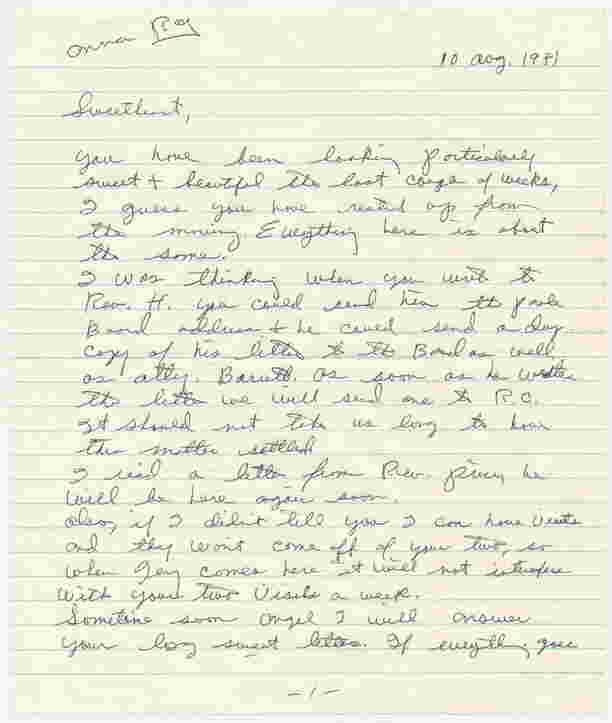 Anna Roy
10 Aug. 1981
Sweetheart,
You have been looking particularly
sweet + beautiful the last couple of weeks,
I guess you have rested up from
the moving. Everything here is about
the same.
I was thinking when you write to
Rev. H. you could send him the parole
Board address + he could send a dup
copy of his letter to the Board as well
as atty. As soon as he writes
the letter we will send one to R.C.
It should not take us long to have
this matter settled
I rec'd a letter from Rev. he
will be here again soon.
Also, if I didn't tell you I can have visits
and they won't come off of your two, so
when comes here it will not interfere
with your two visits a week.
Sometime soon Angel I will answer
your long sweet letter. If everything goes
-1-